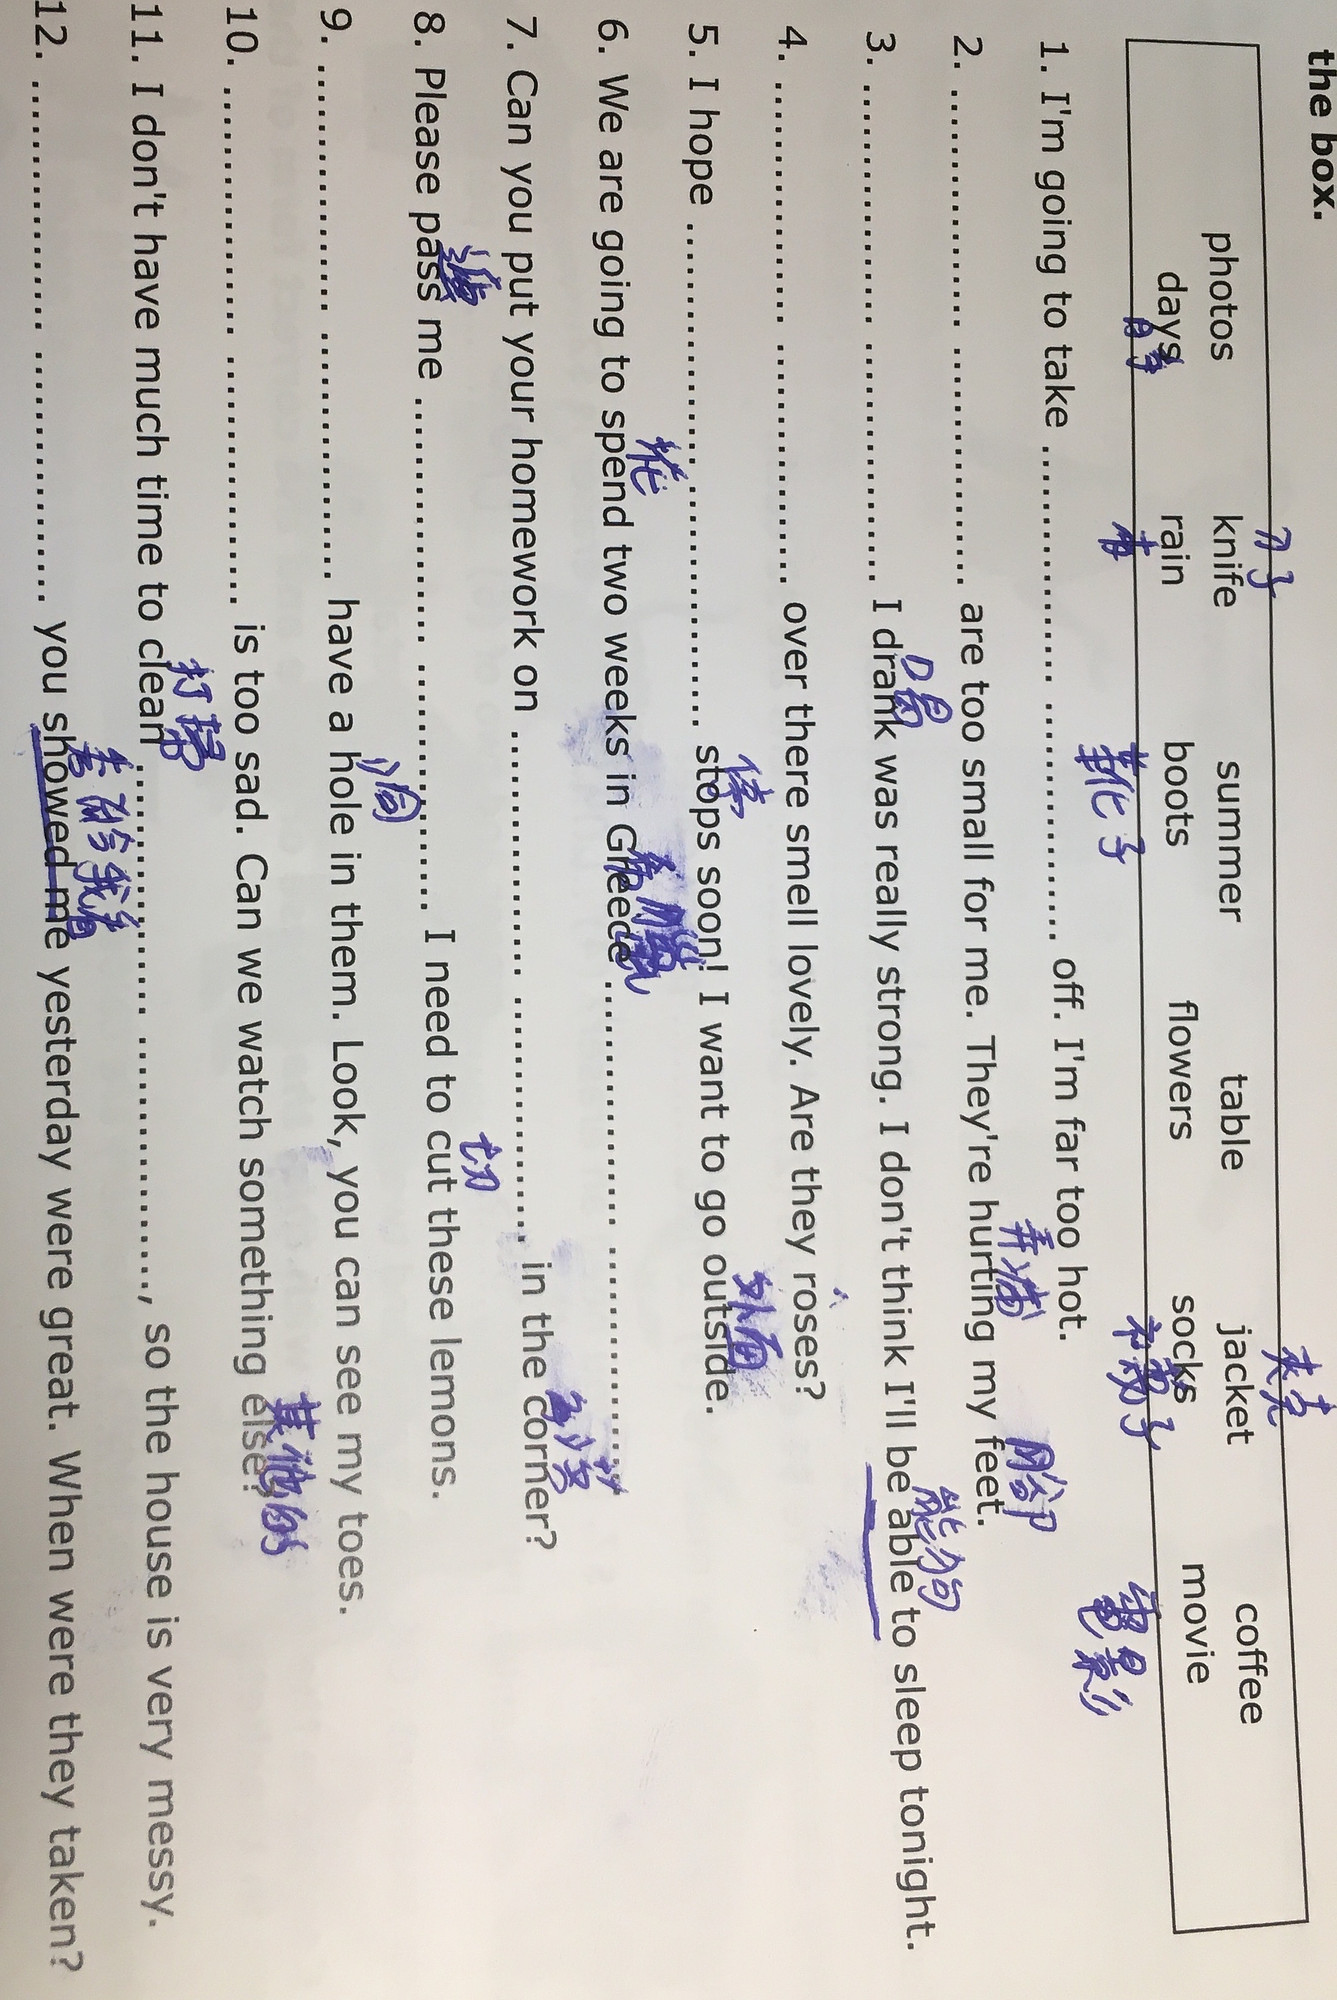 the box.
刀子 夾克
photos knife summer table jacket coffee
days rain boots flowers socks movie
日子 雨 靴子 襪子 電影
1. I'm going to take .............................. .............................. off. I'm far too hot.
弄痛 腳
2. .............................. .............................. are too small for me. They're hurting my feet.
喝 能夠
3. .............................. .............................. I drank was really strong. I don't think I'll be able to sleep tonight.
4. .............................. .............................. over there smell lovely. Are they roses?
停 外面
5. I hope .............................. .............................. stops soon! I want to go outside.
花 希臘
6. We are going to spend two weeks in Greece .............................. ..............................
角落
7. Can you put your homework on .............................. .............................. in the corner?
遞 切
8. Please pass me .............................. .............................. I need to cut these lemons.
洞
9. .............................. .............................. have a hole in them. Look, you can see my toes.
其他的
10. .............................. .............................. is too sad. Can we watch something else?
打掃
11. I don't have much time to clean .............................. .............................., so the house is very messy.
12. .............................. .............................. you showed me yesterday were great. When were they taken?